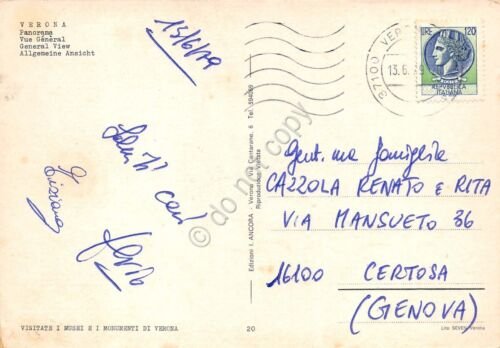 VERONA
Panorama
Vue Général
General View
Allgemeine Ansicht
13/6/79
Saluti cari
Tiziana
VISITATE I MUSEI E I MONUMENTI DI VERONA
20
Edizioni I. ANCORA - Verona (Via Centarane, 6 Tel.
Riproduzione Vietata
37100 VER
13.6.79
LIRE 120
REPUBBLICA
ITALIANA
Gent.ma famiglia
CAZZOLA RENATO e RITA
VIA MANSUETO 36
16100 CERTOSA
(GENOVA)
Lito SEVEN Verona
do not copy